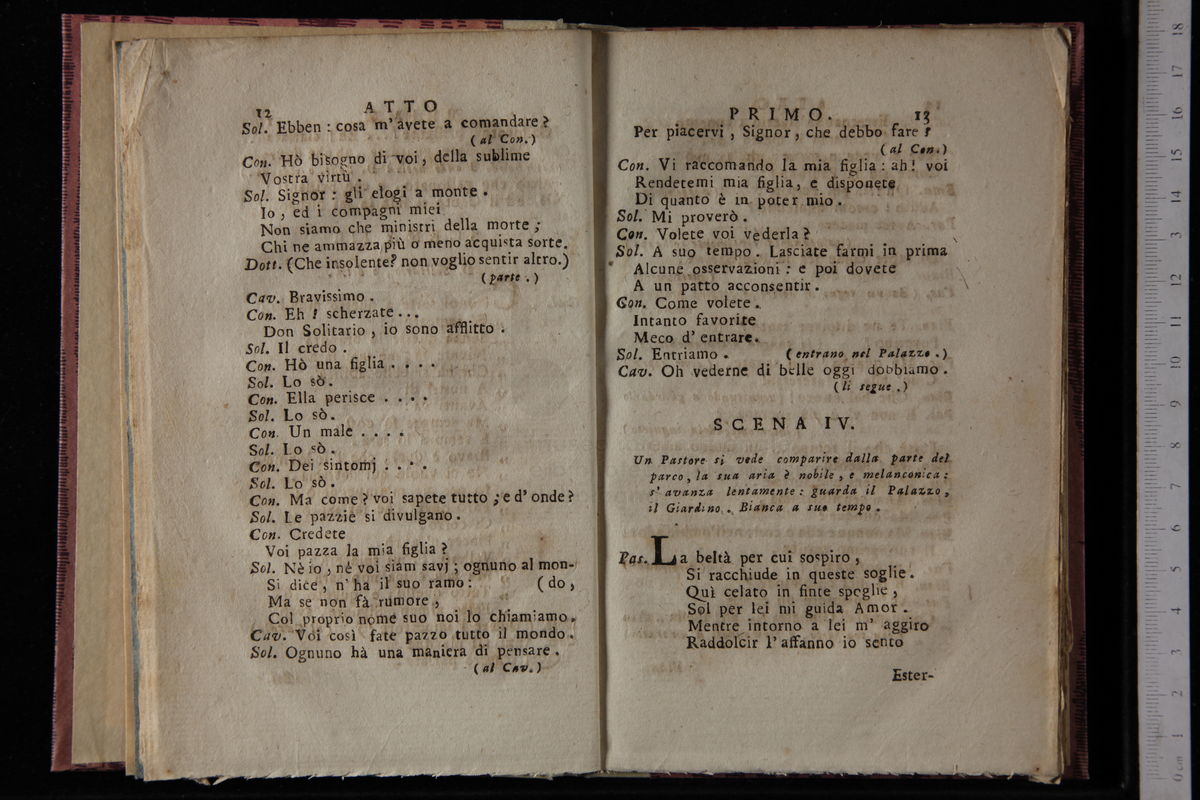 12 ATTO
Sol. Ebben : cosa m' avete a comandare ?
(al Con.)
Con. Hò bisogno di voi, della sublime
Vostra virtù .
Sol. Signor : gli elogi a monte .
Io , ed i compagni miei
Non siamo che ministri della morte ;
Chi ne ammazza più o meno acquista sorte.
Dott. (Che insolente? non voglio sentir altro.)
(parte .)
Cav. Bravissimo .
Con. Eh ! scherzate ...
Don Solitario , io sono afflitto .
Sol. Il credo .
Con. Hò una figlia . . . .
Sol. Lo sò.
Con. Ella perisce . . . .
Sol. Lo sò.
Con. Un male . . . .
Sol. Lo sò .
Con. Dei sintomj . . . .
Sol. Lo sò .
Con. Ma come ? voi sapete tutto ; e d' onde ?
Sol. Le pazzie si divulgano .
Con. Credete
Voi pazza la mia figlia ?
Sol. Nè io , nè voi siam savj ; ognuno al mon-
Si dice , n' ha il suo ramo : (do,
Ma se non fà rumore ,
Col proprio nome suo noi lo chiamiamo.
Cav. Voi così fate pazzo tutto il mondo .
Sol. Ognuno hà una maniera di pensare .
(al Cav.)
PRIMO. 13
Per piacervi , Signor , che debbo fare ?
(al Con.)
Con. Vi raccomando la mia figlia : ah! voi
Rendetemi mia figlia, e disponete
Di quanto è in poter mio .
Sol. Mi proverò .
Con. Volete voi vederla ?
Sol. A suo tempo . Lasciate farmi in prima
Alcune osservazioni : e poi dovete
A un patto acconsentir .
Con. Come volete .
Intanto favorite
Meco d' entrare.
Sol. Entriamo . (entrano nel Palazzo .)
Cav. Oh vederne di belle oggi dobbiamo .
(li segue .)
SCENA IV.
Un Pastore si vede comparire dalla parte del
parco, la sua aria è nobile , e melanconica :
s' avanza lentamente : guarda il Palazzo ,
il Giardino . Bianca a suo tempo .
Pas. La beltà per cui sospiro ,
Si racchiude in queste soglie .
Quì celato in finte spoglie ,
Sol per lei mi guida Amor .
Mentre intorno a lei m' aggiro
Raddolcir l' affanno io sento
Ester-
0 cm 1 2 3 4 5 6 7 8 9 10 11 12 13 14 15 16 17 18